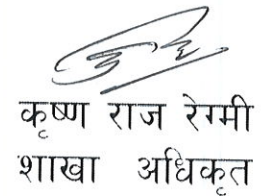 कृष्ण राज रेग्मी
शाखा अधिकृत